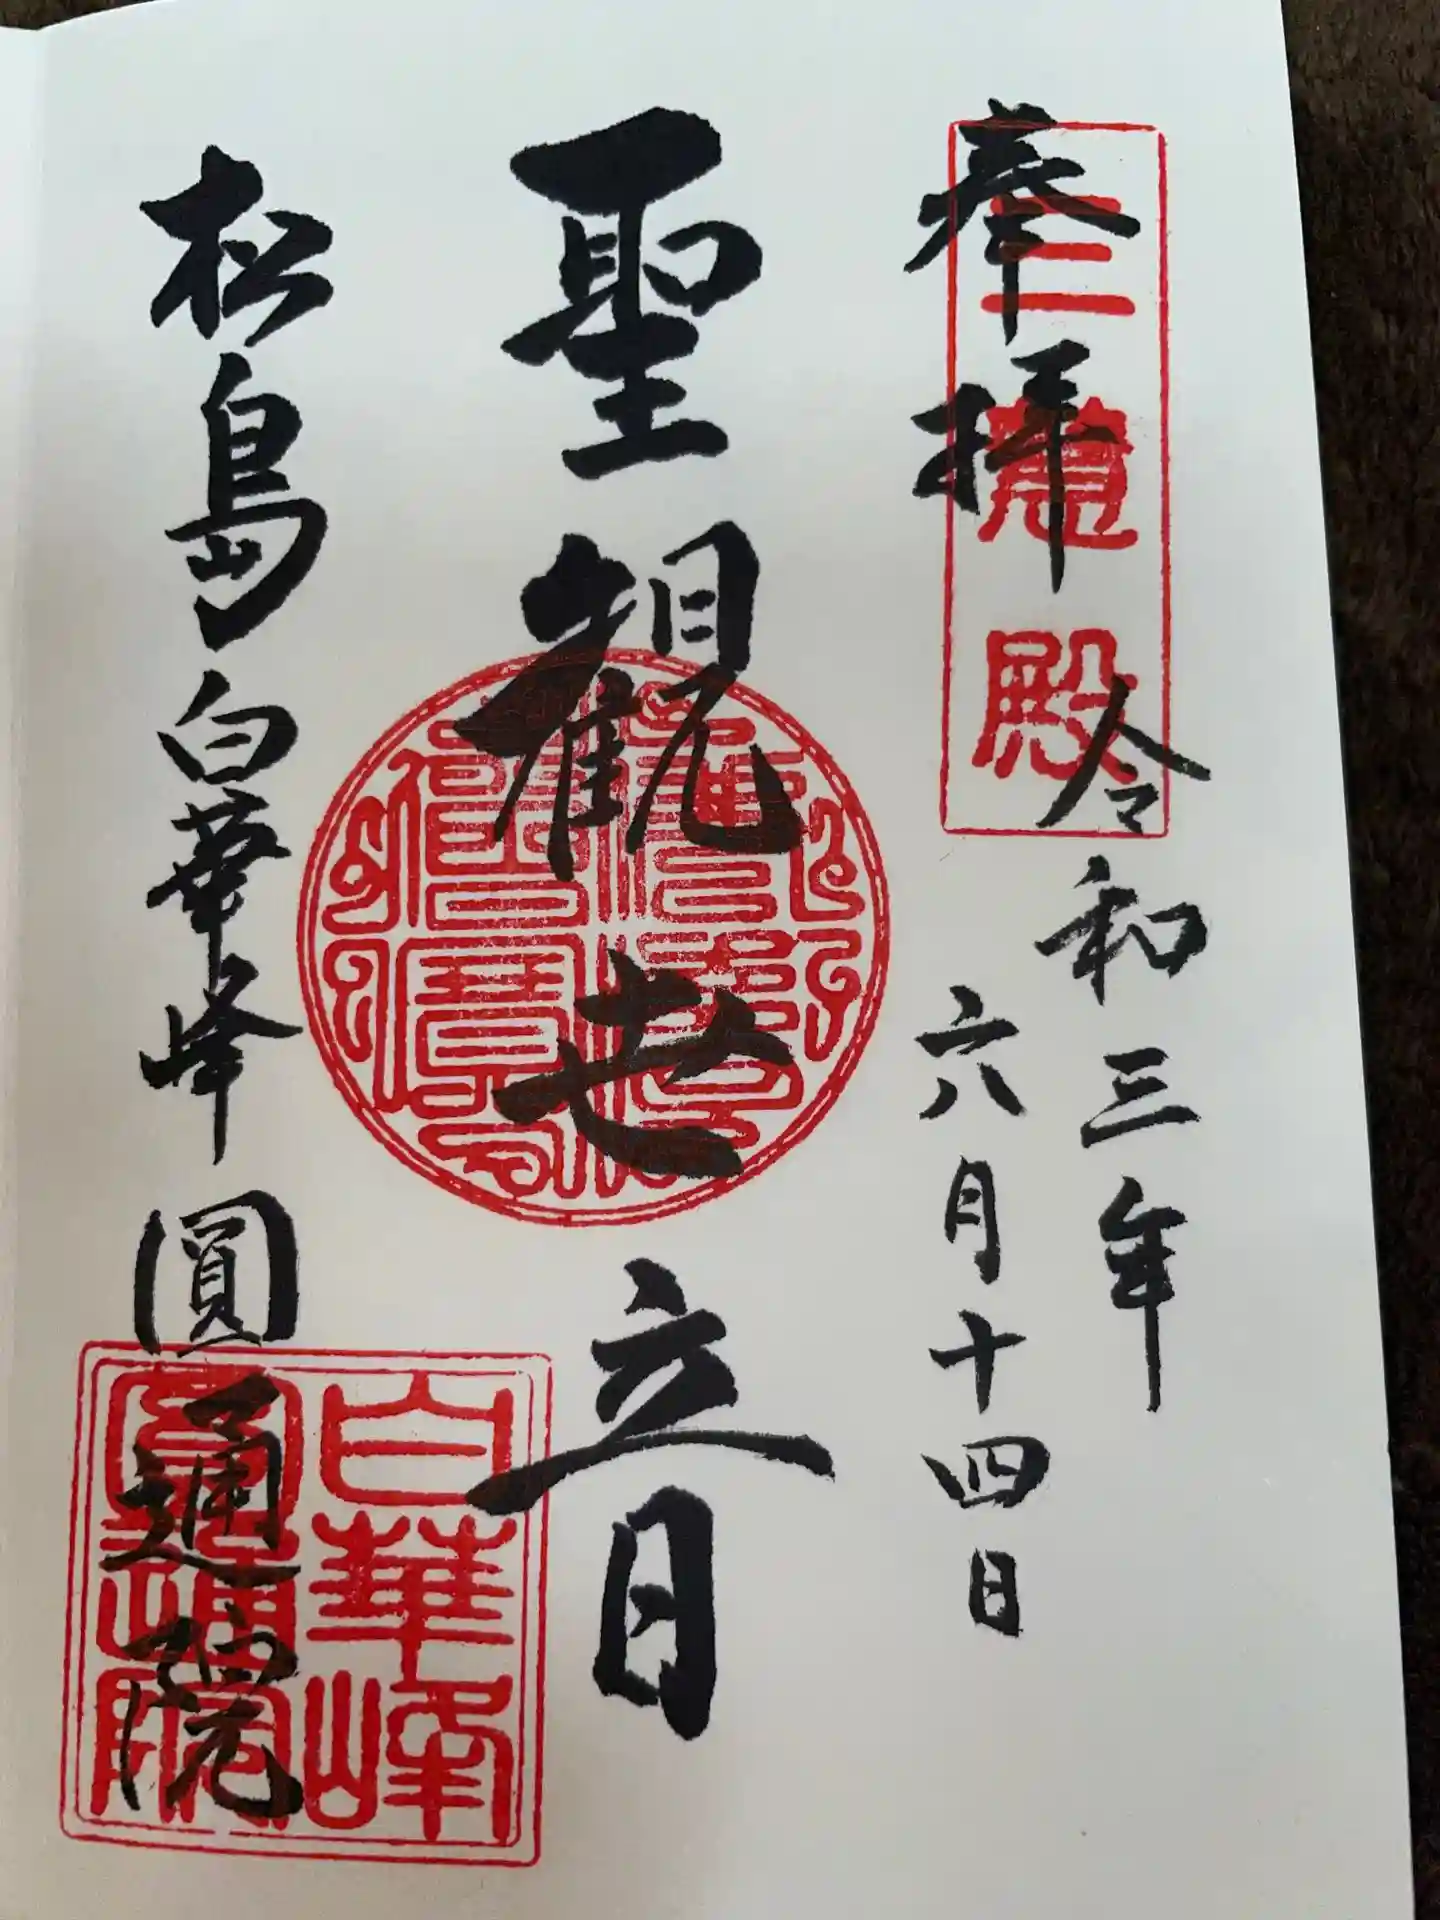 奉拝
三慧殿
令和三年
六月十四日
聖観世立日
松島白華峰圓通院
白華峰
圓通院